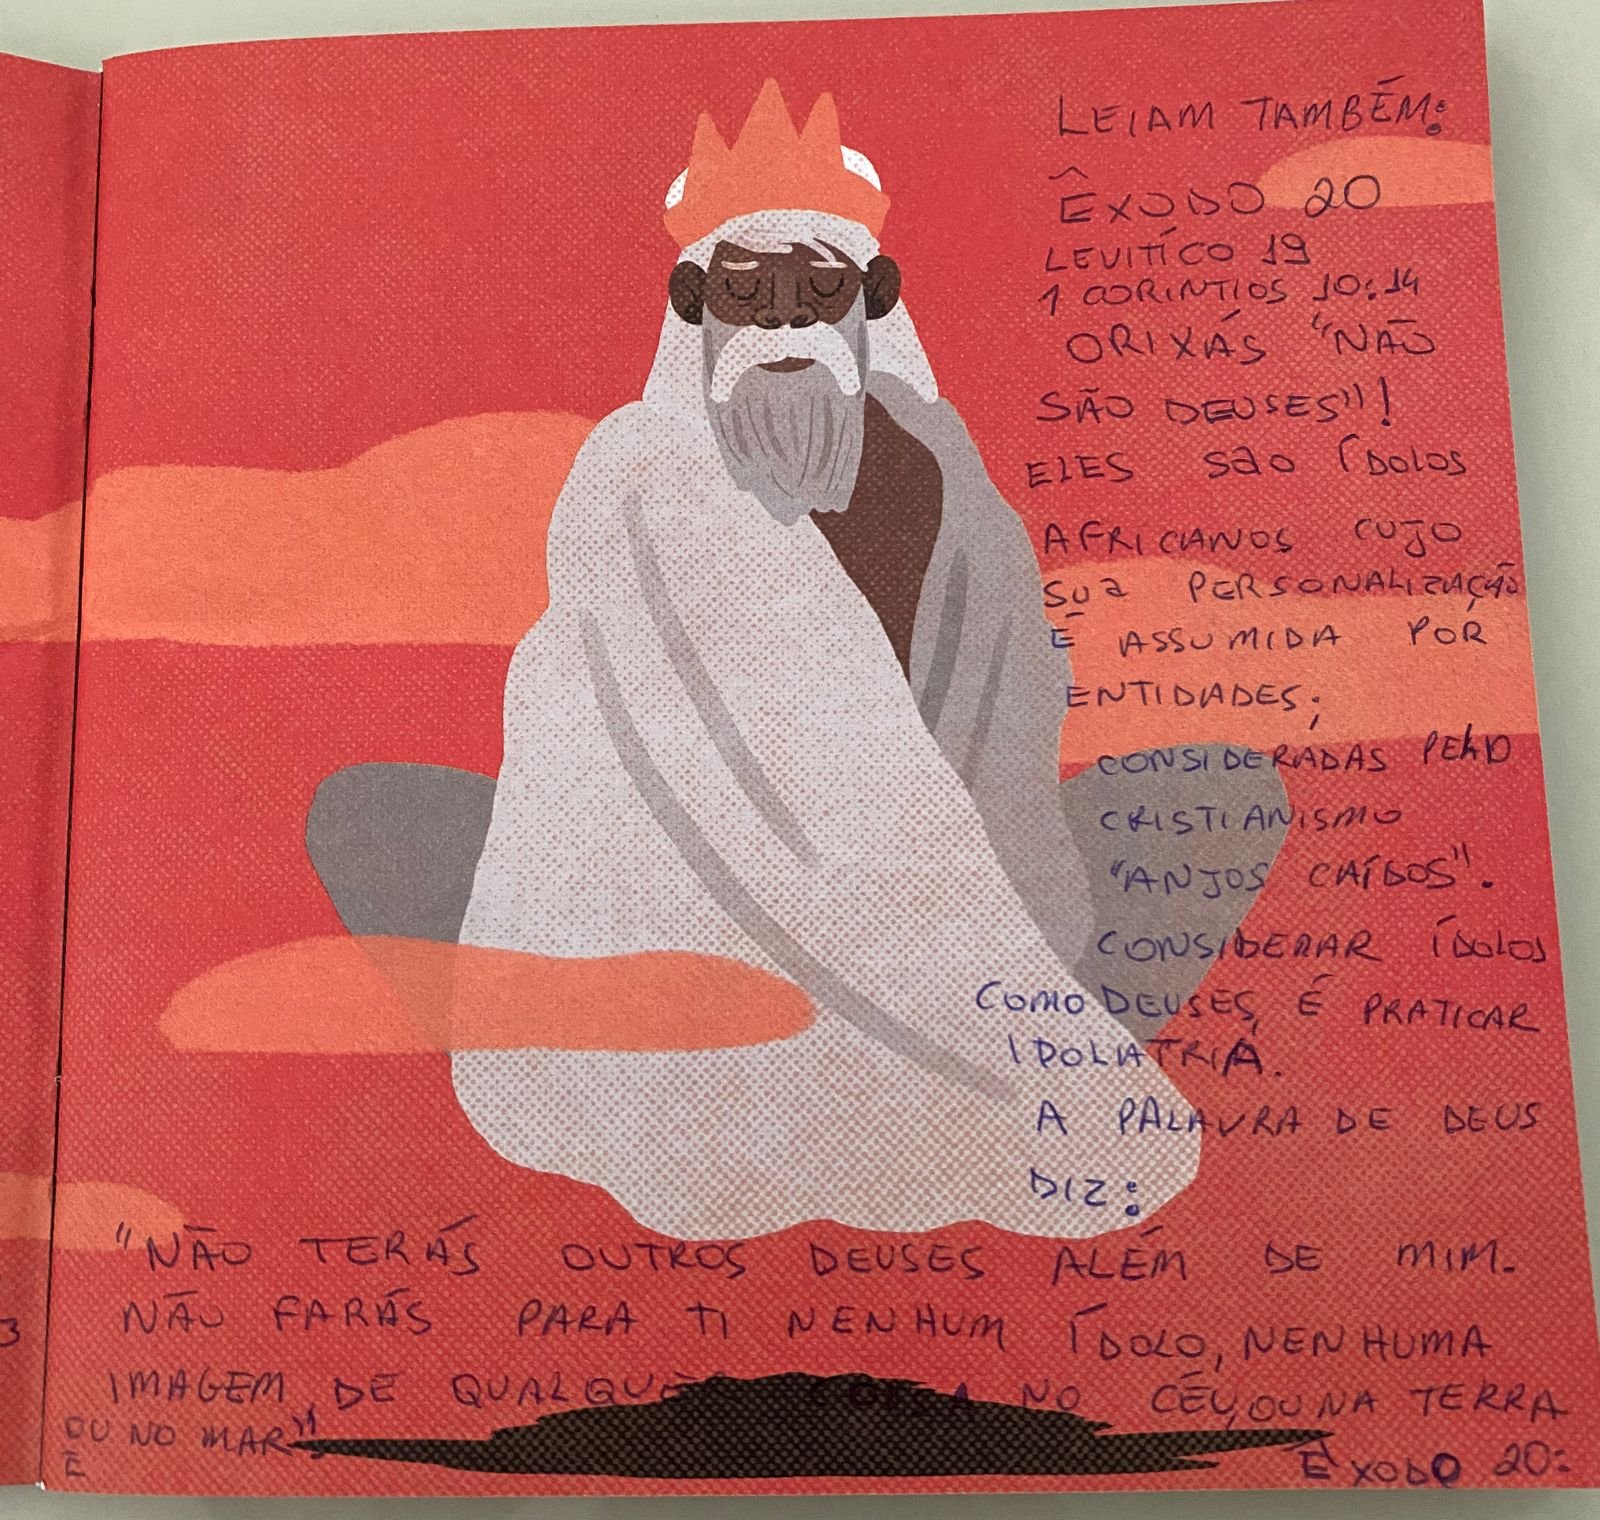 LEIAM TAMBÉM:
ÊXODO 20
LEVITÍCO 19
1 CORINTIOS 10:14
ORIXÁS "NÃO
SÃO DEUSES"!
ELES SãO ÍDOLOS
AFRICANOS CUJO
SUA PERSONALIZAÇÃO
É ASSUMIDA POR
ENTIDADES;
CONSIDERADAS PELO
CRISTIANISMO
"ANJOS CAÍDOS".
CONSIDERAR ÍDOLOS
COMO DEUSES, É PRATICAR
IDOLATRIA.
A PALAVRA DE DEUS
DIZ:
"NÃO TERÁS OUTROS DEUSES ALÉM DE MIM.
NÃO FARÁS PARA TI NENHUM ÍDOLO, NENHUMA
IMAGEM DE QUALQUER COISA NO CÉU, OU NA TERRA
OU NO MAR"
É
ÊXODO 20: